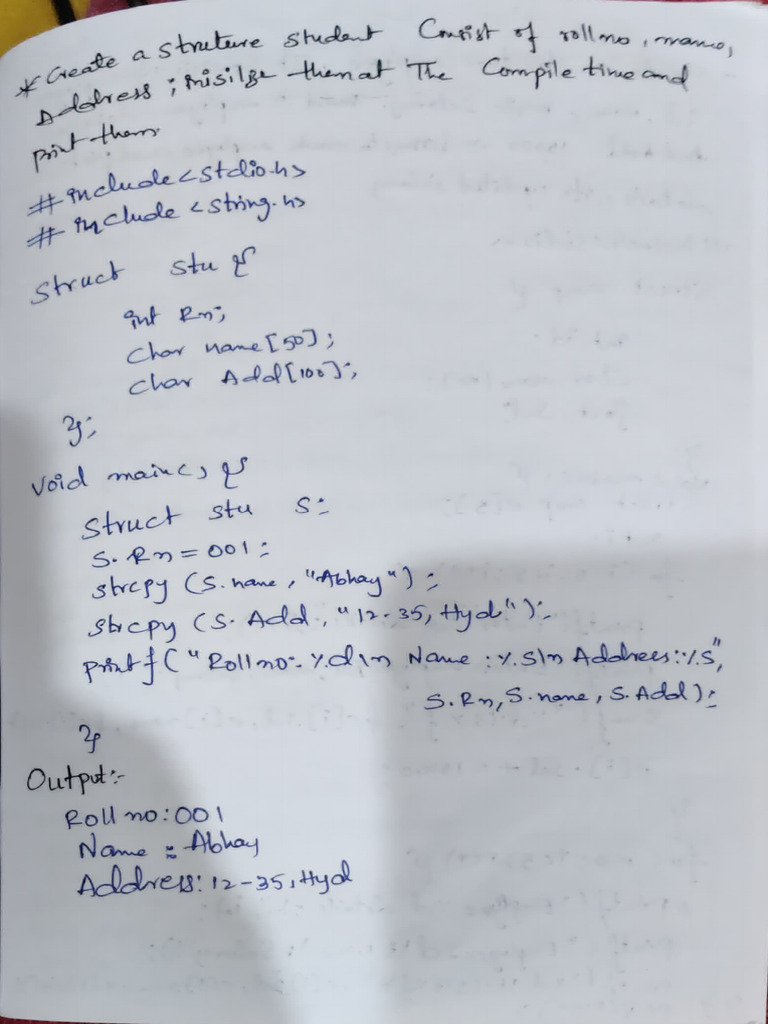 * Create a struture student Consist of rollno, name,
Address ; inisilze them at The Compile time and
print them.
# include <stdio.h>
# include <string.h>
Struct stu {
int Rn;
Char name[50];
Char Add[100];
};
Void main() {
Struct stu S;
S. Rn = 001;
strcpy (S. name, "Abhay");
strcpy (S. Add, "12-35, Hyd");
printf ("Roll no:- %d\n Name : %s\n Address: %s",
S. Rn, S. name, S. Add);
}
Output:-
Roll no: 001
Name : Abhay
Address: 12-35, Hyd